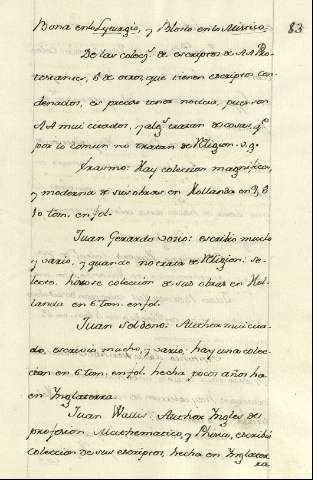 83
Bona en lo Lyturgio, y Blosio en lo Mistico.
De las colecs. de escriptos de AA Pro-
testantes, ó de otros, que tienen escriptos con-
denados, es preciso tener noticia, pues son
AA mui citados, y algs. tratan de cosas, qe.
por lo comun no tratan de Religion. v.g.
Erasmo: Hay coleccion magnifica,
y moderna de sus obras en Hollanda en 8, ó
10 tom. en fol.
Juan Gerardo vosio: escribió mucho
y vario, y quando no trata de Religion: se-
lecto, hizose coleccion de sus obras en Hol-
landa en 6 tom. en fol.
Juan Seldeno: Author mui cita-
do, escrevio mucho, y vario, hay una colec-
cion en 6 tom. en fol. hecha pocos años ha
en Inglaterra
Juan Wallis: Author Ingles de
profesion Mathematico, y Phisico, escribió
coleccion de sus escriptos, hecha en Inglater-
ra